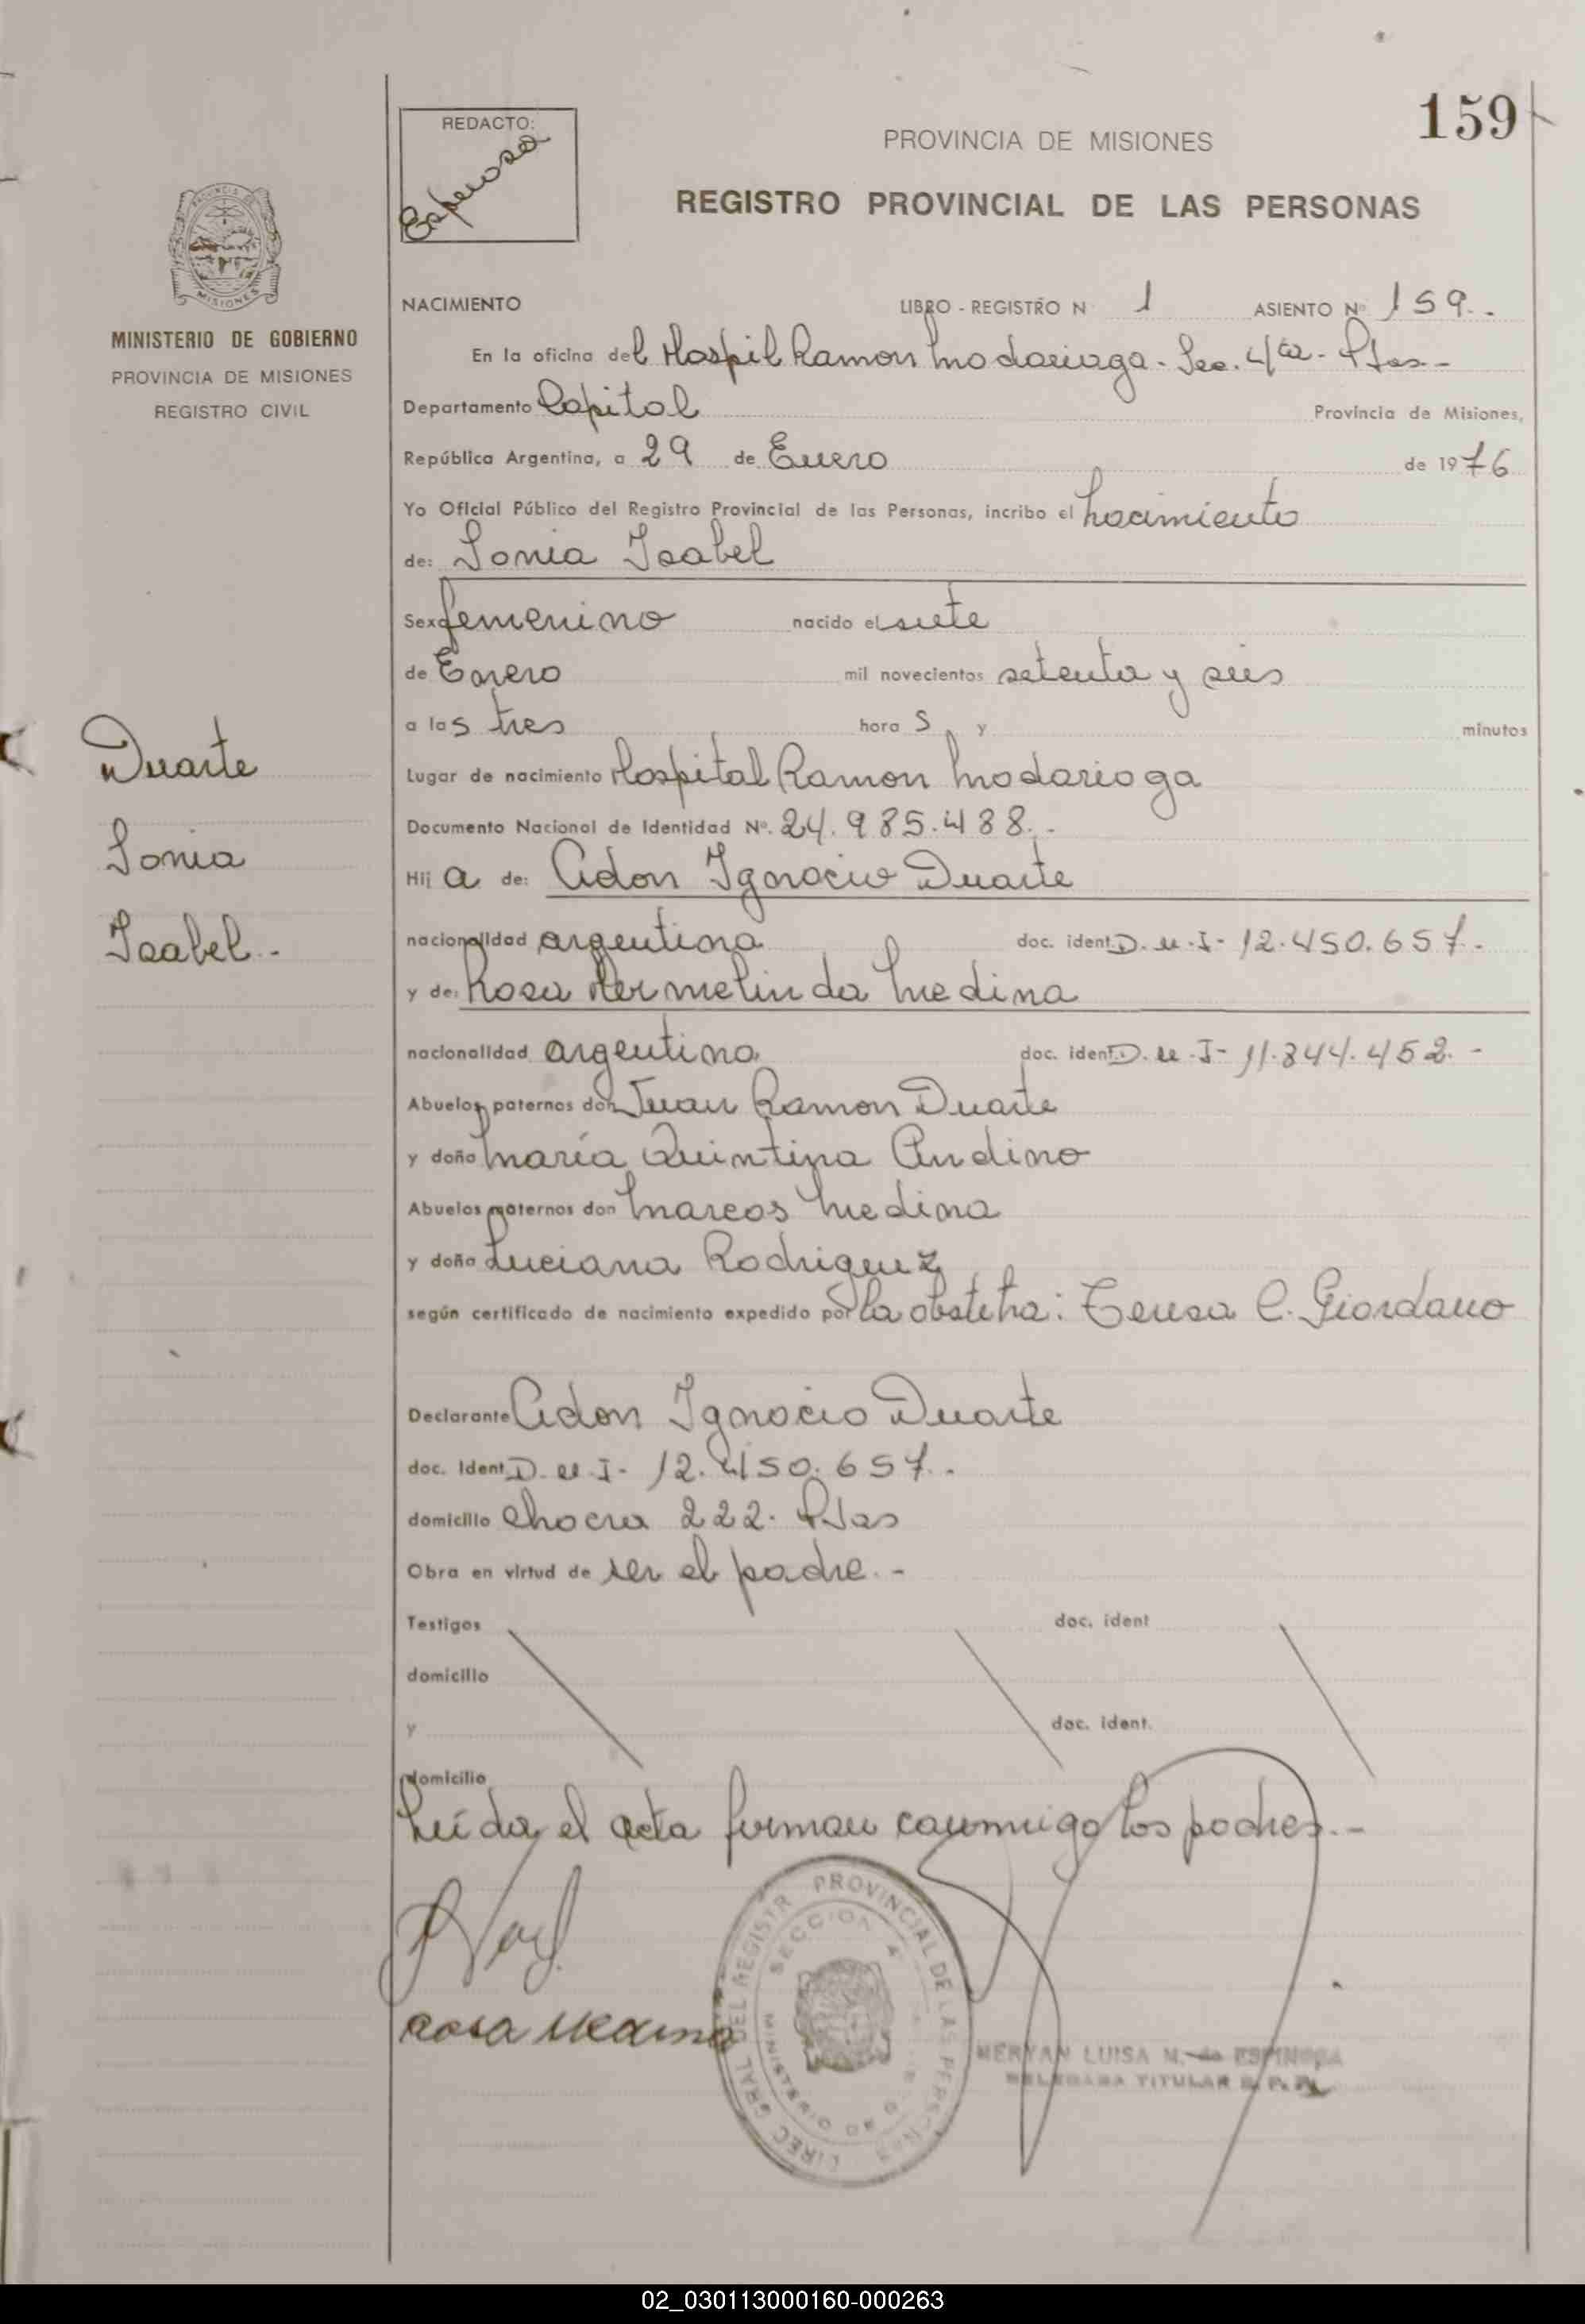 159
REDACTO:
Esperosa
PROVINCIA DE MISIONES
REGISTRO PROVINCIAL DE LAS PERSONAS
MISIONES
MINISTERIO DE GOBIERNO
PROVINCIA DE MISIONES
REGISTRO CIVIL
Duarte
Sonia
Isabel.-
NACIMIENTO LIBRO - REGISTRO N 1 ASIENTO Nº 159..
En la oficina del Hospil Ramon Madariaga - Sec. 4ta - Pdas--
Departamento Capital Provincia de Misiones,
República Argentina, a 29 de Enero de 1976
Yo Oficial Público del Registro Provincial de las Personas, incribo el nacimiento
de: Sonia Isabel
Sexo femenino nacido el siete
de Enero mil novecientos setenta y seis
a las tres hora s y minutos
Lugar de nacimiento Hospital Ramon Madariaga
Documento Nacional de Identidad Nº. 24.985.488.-
Hij a de: Adon Ignacio Duarte
nacionalidad argentina doc. ident. D.N.I- 12.450.657.-
y de: Rosa Hermelinda Medina
nacionalidad argentina doc. ident. D.N.I- 11.844.452.-
Abuelos paternos don Juan Ramon Duarte
y doña María Quintina Andino
Abuelos maternos don Marcos Medina
y doña Luciana Rodriguez
según certificado de nacimiento expedido por la obstetra: Teresa C. Giordano
Declarante Adon Ignacio Duarte
doc. Ident. D.N.I- 12.450.657.-
domicilio chacra 222. Pdas
Obra en virtud de ser el padre.-
Testigos doc. ident
domicilio
y doc. ident.
domicilio
Leída el acta firman conmigo los padres.-
Rosa Medina
DIREC GRAL DEL REGISTR PROVINCIAL DE LAS PERSONAS
SECCION 4
MINISTERIO DE G
MERYAN LUISA M. de ESPINOSA
DELEGADA TITULAR R. P. P.
02_030113000160-000263